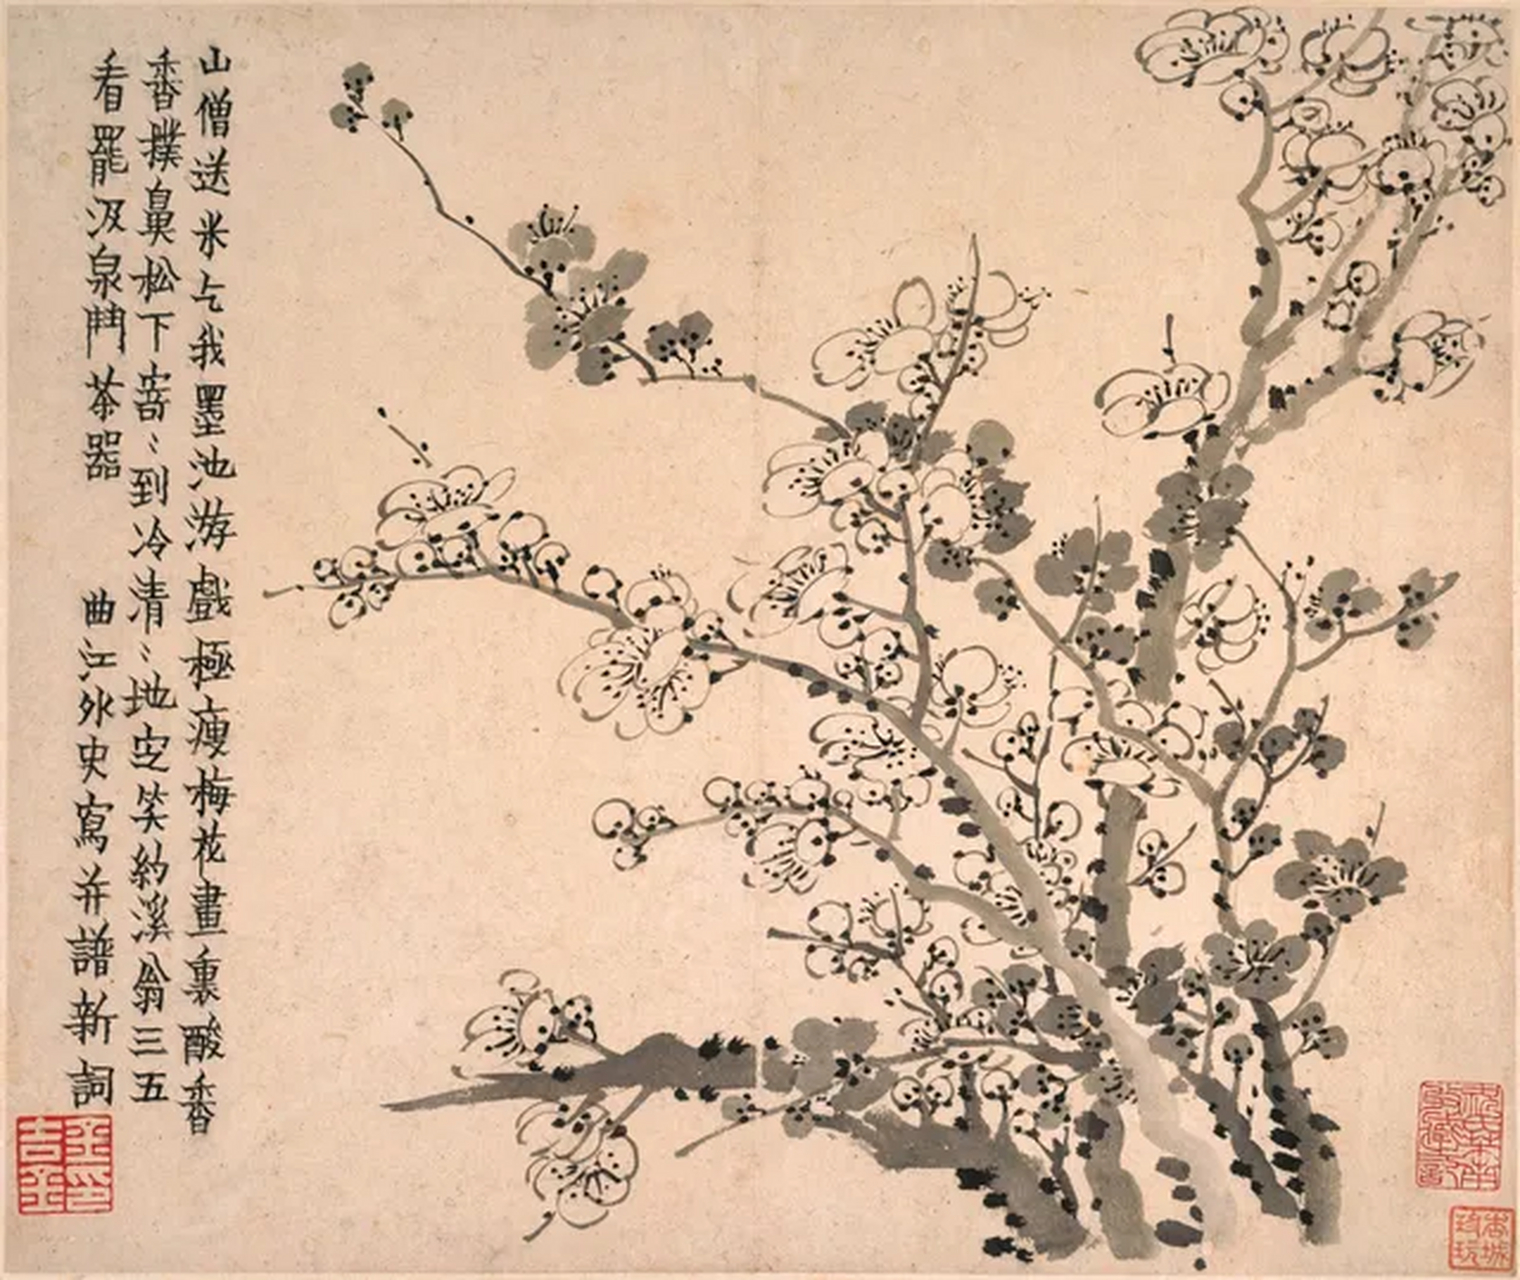 山僧送米乞我墨池游戲極瘦梅花畫裏酸香
香撲鼻松下寄〻到冷清〻地定笑約溪翁三五
看罷汲泉鬥茶器
曲江外史寫并譜新詞